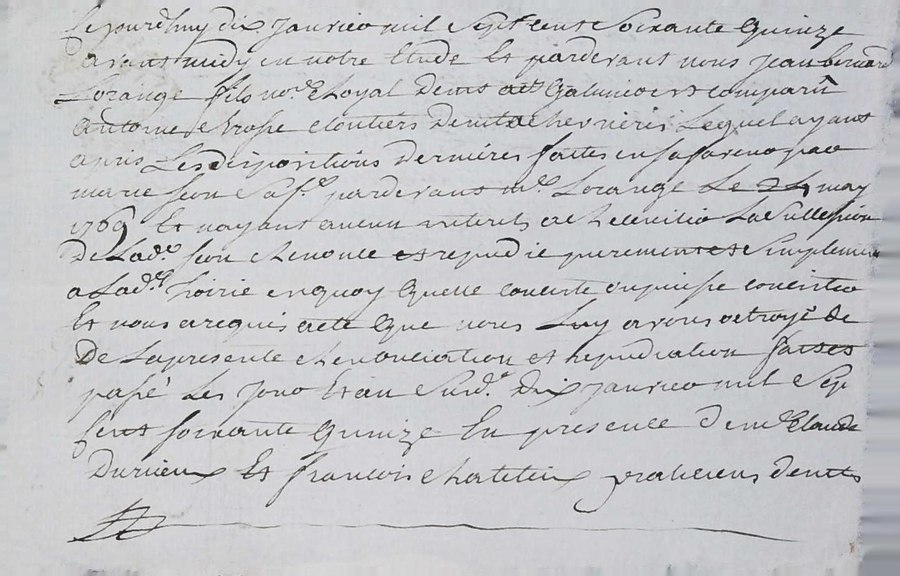 Le jourdhuy dix Janvier mil sept cent soixante quinze
avant midy en notre Etude Et pardevant nous jean bernard
Lorange fils no.re Royal de st Galmier est comparû
antoine Crospe cloutiers de st a chevrieres Lequel ayant
apris Les dispositions dernieres faites en sa faveur par
marie seon sa f.e pardevant m.e Lorange Le 24 may
1769 Et nayant aucun interets a Recueillir La Succession
De Lad.e seon Renonce et repudie purement et Simplement
a Lad.e hoirie en quoy Quelle consiste ou puisse consister
Et nous a requis acte Que nous Luy avons octroyé de
De La presente Renonciation et repudiation fait et
passé Les Jour Et an Susd.s Dix janvier mil Sept
Cent soixante Quinze En presence de m.e Claude
Durieux Et francois Chatelux praticiens de st